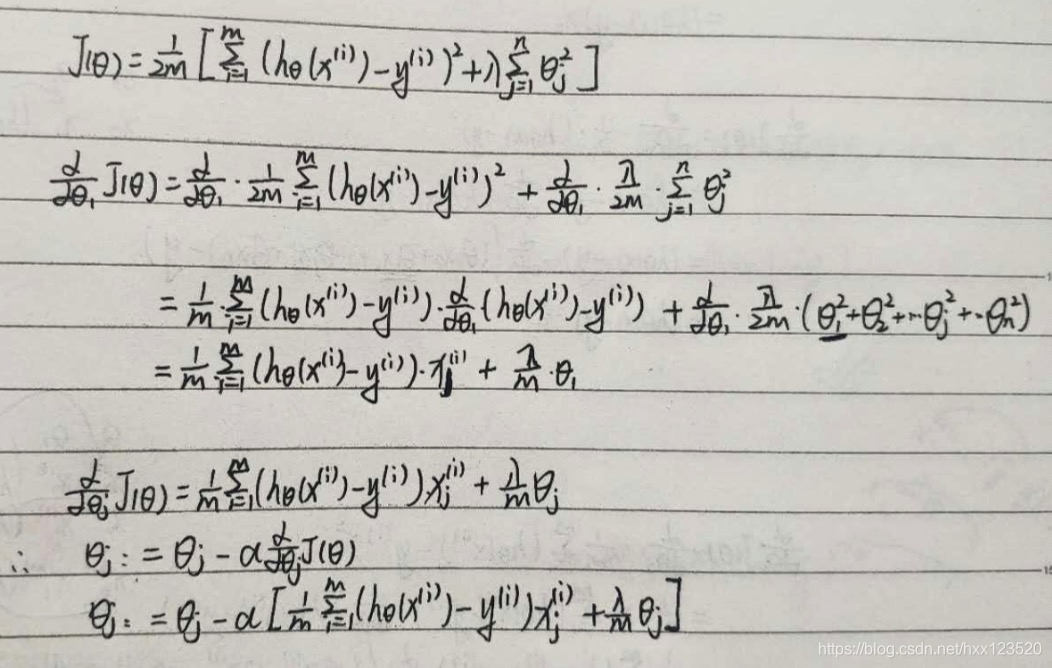 J(θ) = 1/2m [ Σ_{i=1}^{m} (hθ(x^(i)) - y^(i))² + λ Σ_{j=1}^{n} θj² ]
d/dθ₁ J(θ) = d/dθ₁ · 1/2m Σ_{i=1}^{m} (hθ(x^(i)) - y^(i))² + d/dθ₁ · λ/2m · Σ_{j=1}^{n} θj²
= 1/m · Σ_{i=1}^{m} (hθ(x^(i)) - y^(i)) · d/dθ₁ (hθ(x^(i)) - y^(i)) + d/dθ₁ · λ/2m · (θ₁² + θ₂² + ··· θj² + ·· θn²)
= 1/m Σ_{i=1}^{m} (hθ(x^(i)) - y^(i)) · x₁^(i) + λ/m · θ₁
d/dθj J(θ) = 1/m Σ_{i=1}^{m} (hθ(x^(i)) - y^(i)) xj^(i) + λ/m θj
∴ θj := θj - α d/dθj J(θ)
θj := θj - α [ 1/m Σ_{i=1}^{m} (hθ(x^(i)) - y^(i)) xj^(i) + λ/m θj ]
https://blog.csdn.net/hxx123520